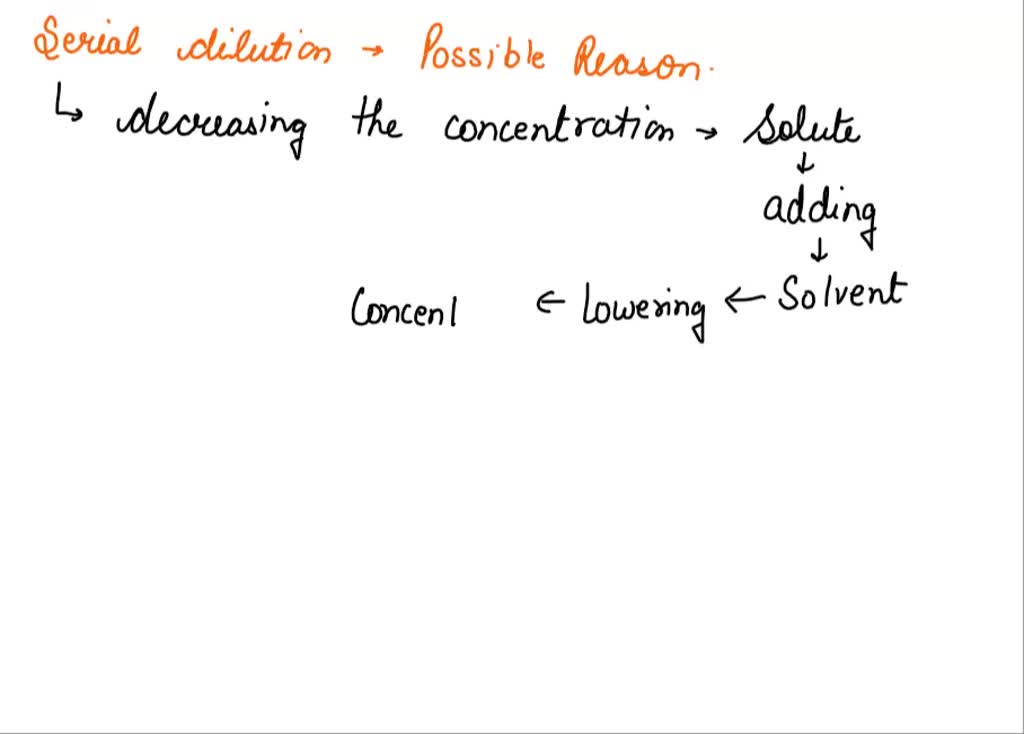 Serial dilution → Possible Reason.
↳ decreasing the concentration → Solute
↓
adding
↓
Concenl ← lowering ← Solvent